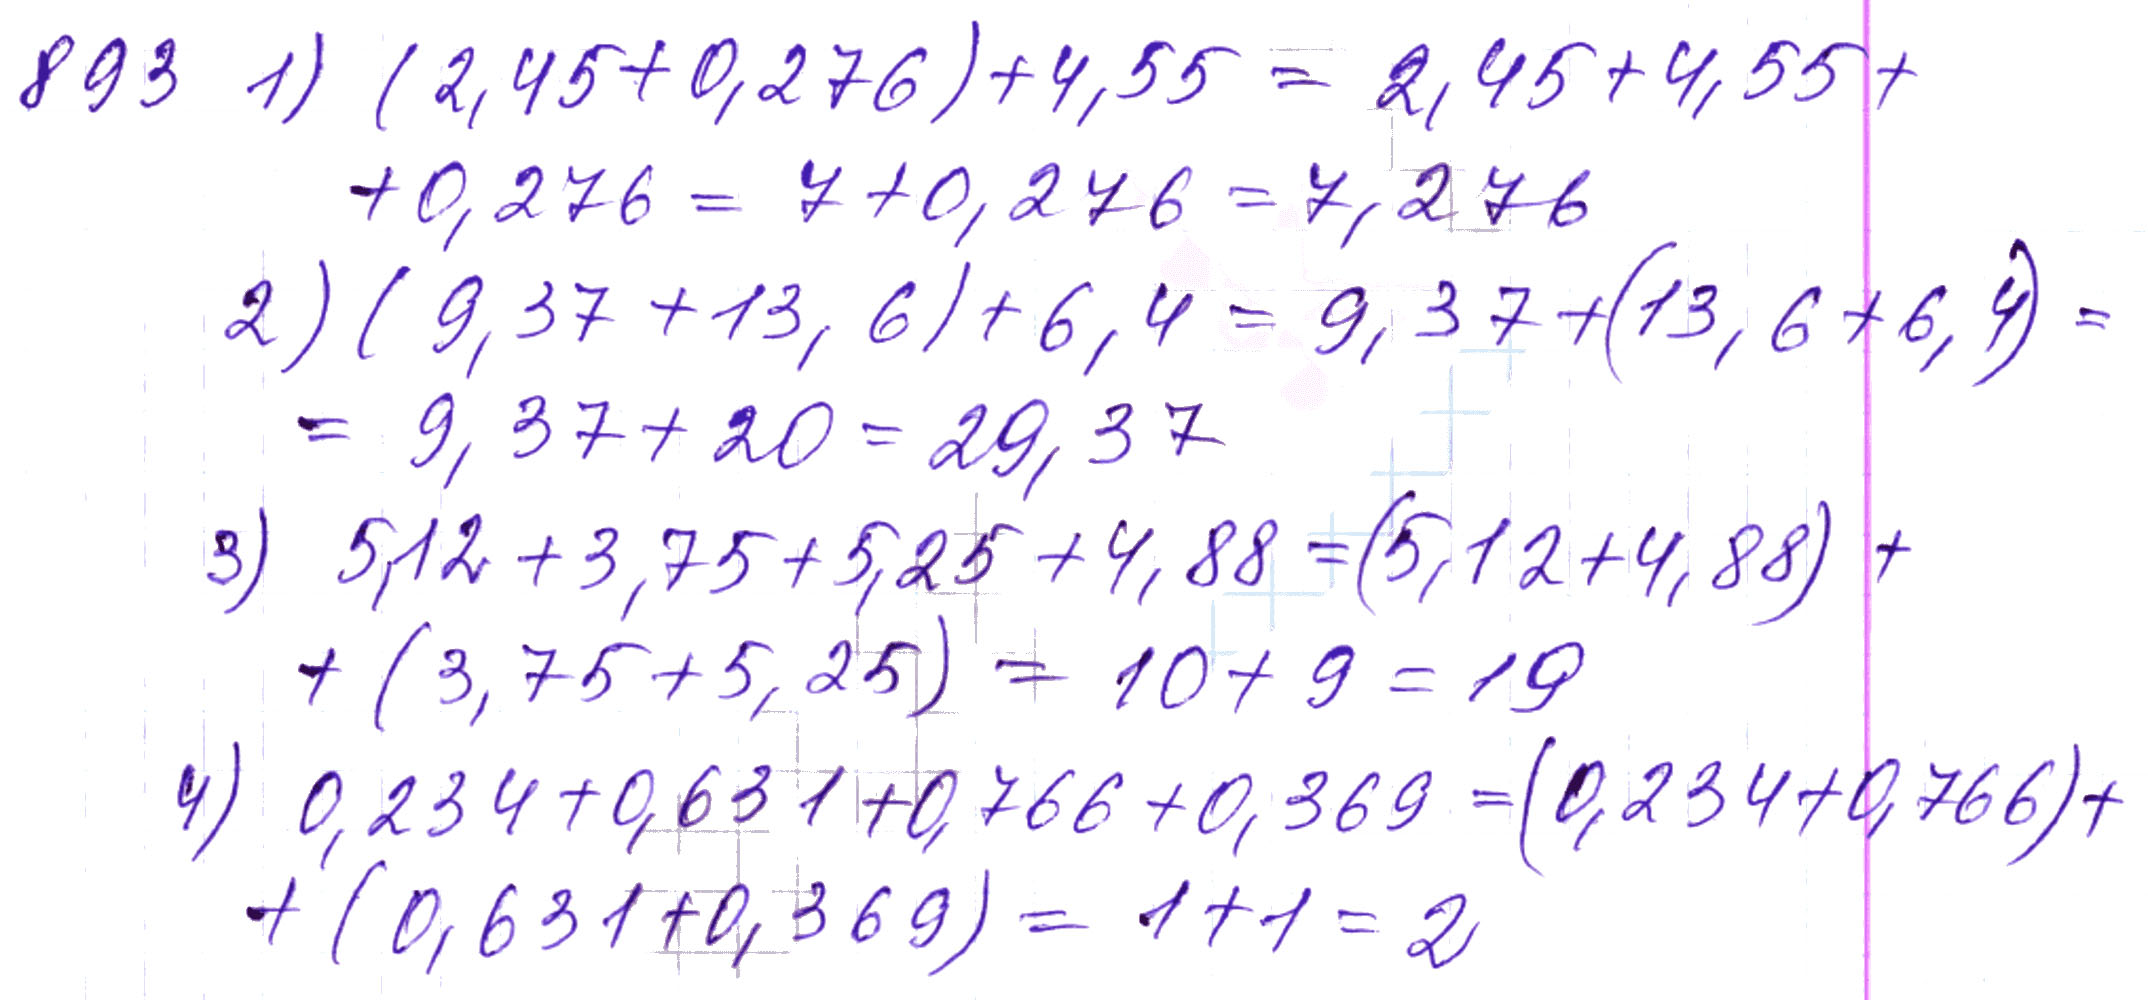 893 1) (2,45+0,276)+4,55 = 2,45+4,55+
+0,276 = 7+0,276 = 7,276
2) (9,37+13,6)+6,4 = 9,37+(13,6+6,4) =
= 9,37+20 = 29,37
3) 5,12+3,75+5,25+4,88 =(5,12+4,88)+
+(3,75+5,25) = 10+9 = 19
4) 0,234+0,631+0,766+0,369 =(0,234+0,766)+
+(0,631+0,369) = 1+1 = 2